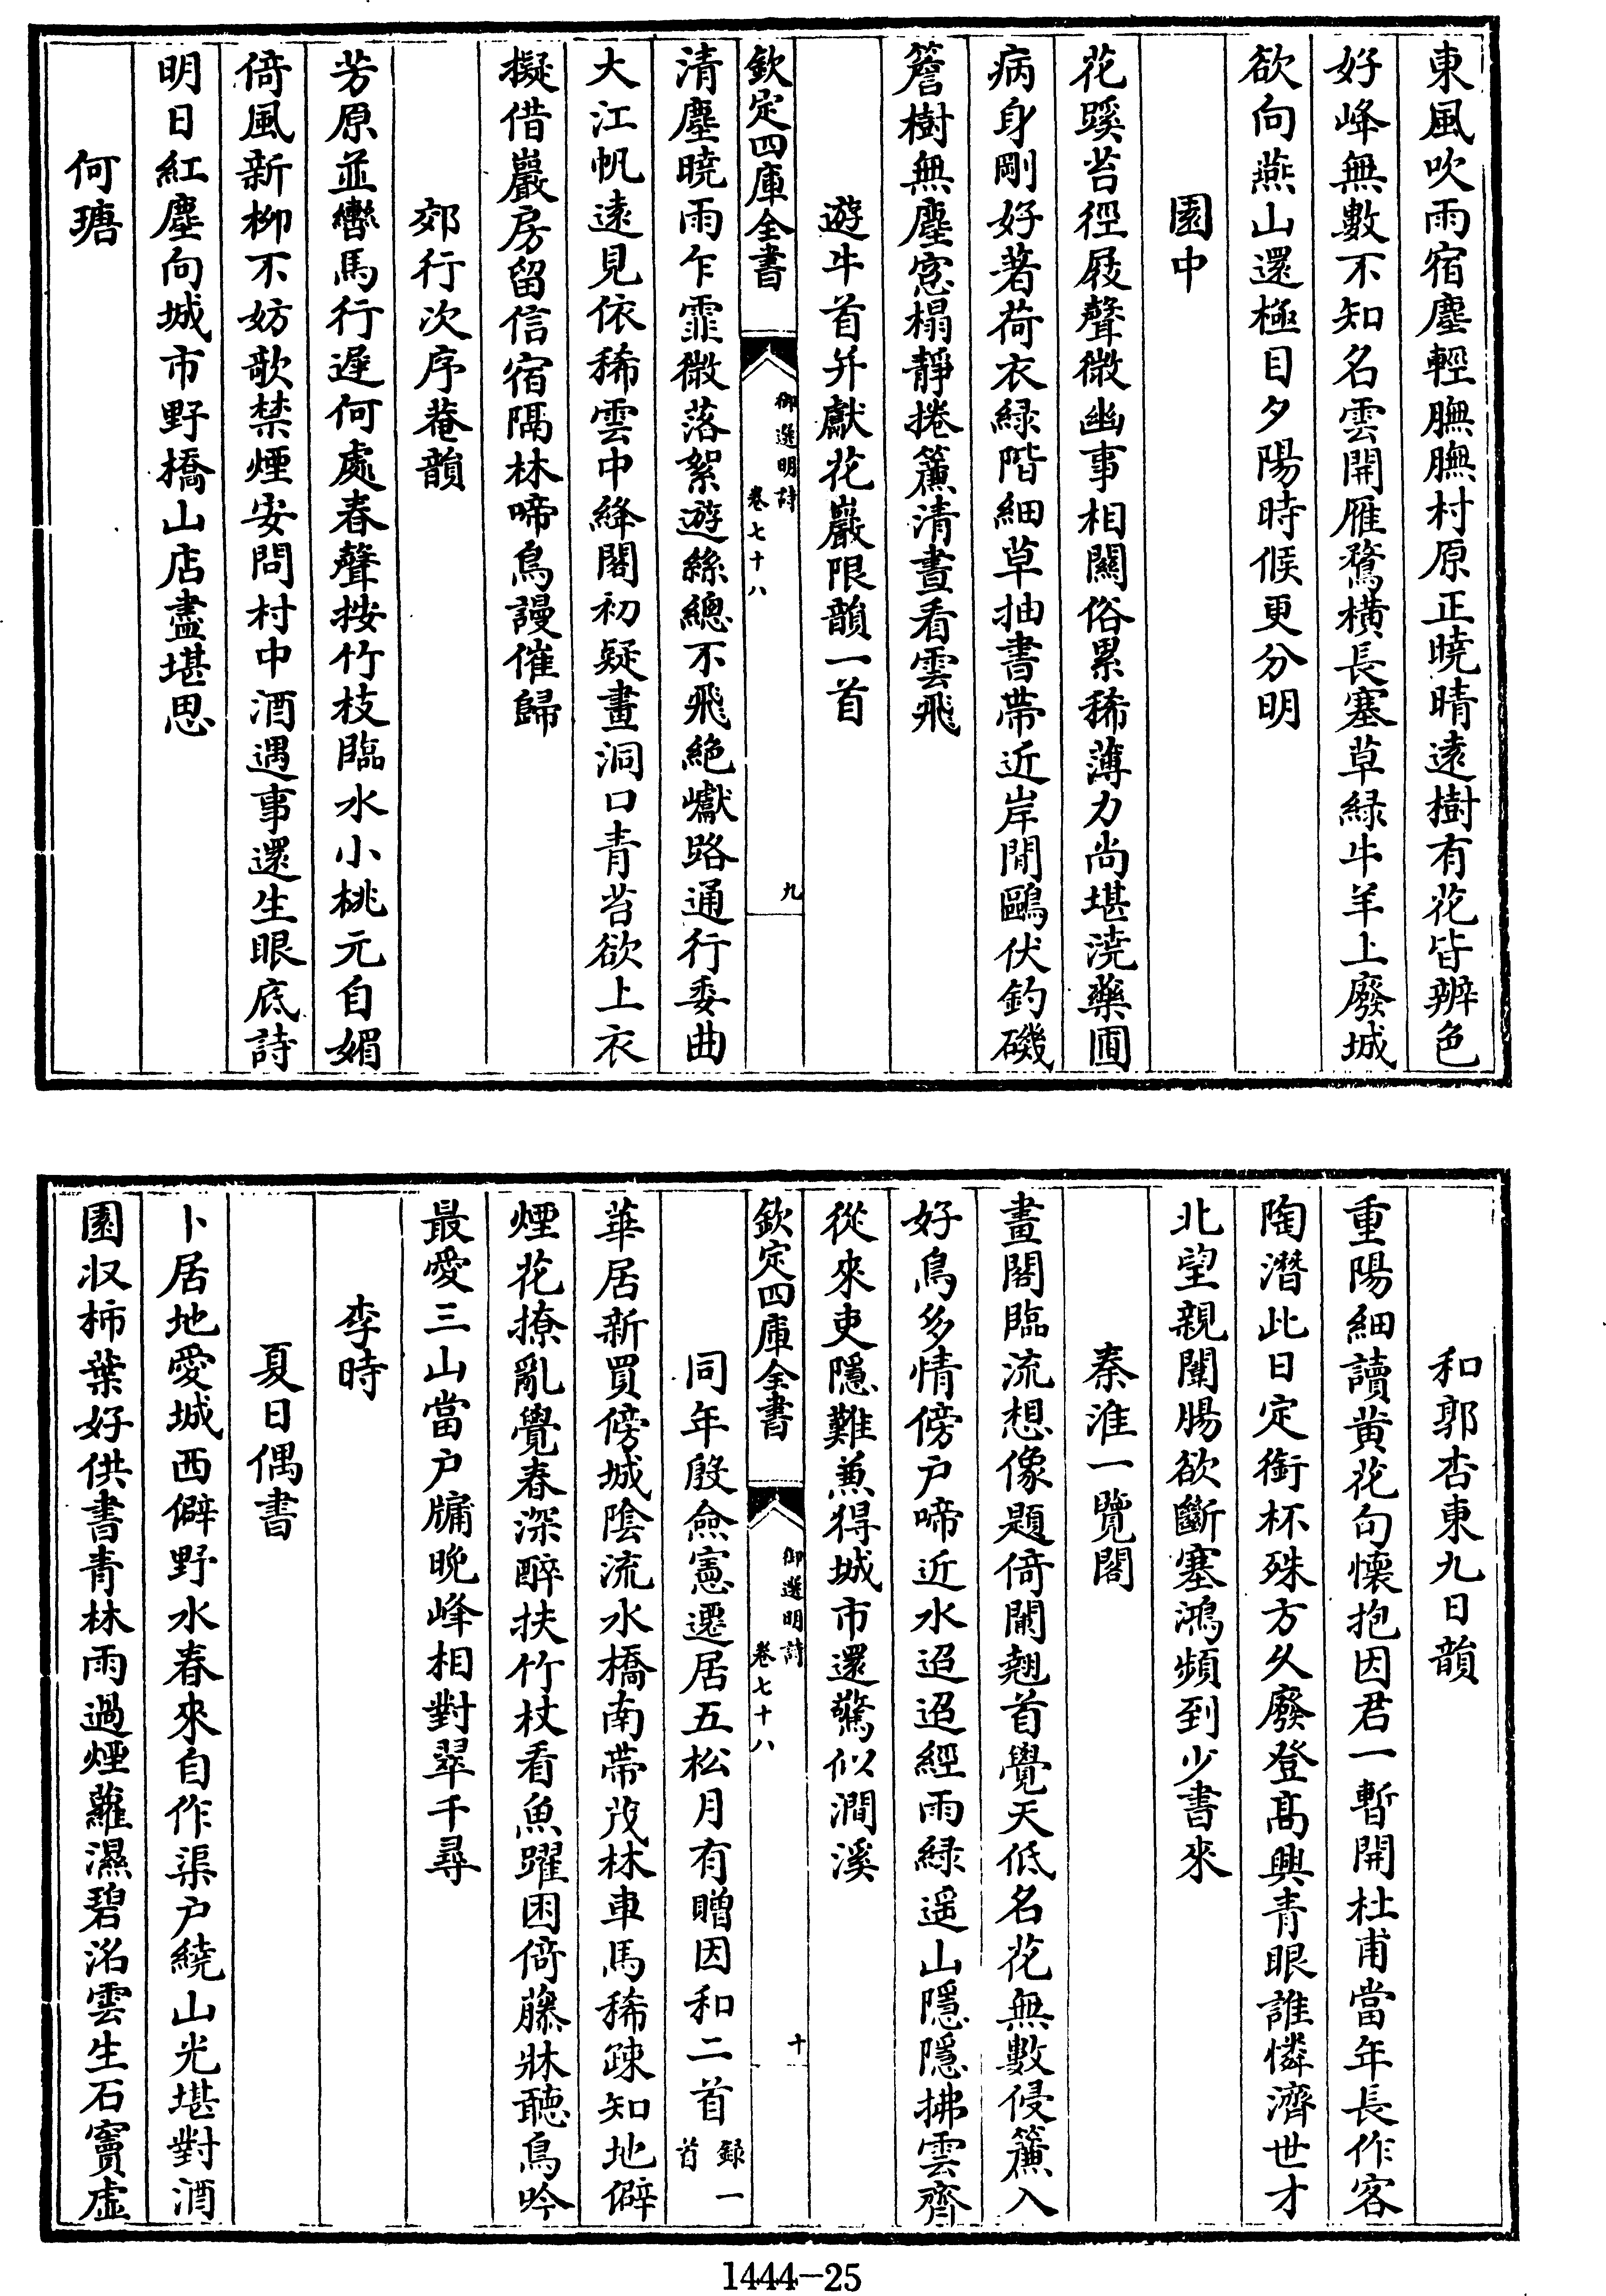 東風吹雨宿塵輕膴膴村原正曉晴遠樹有花皆辨色
好峰無數不知名雲開雁鶩橫長塞草緑牛羊上廢城
欲向燕山還極目夕陽時候更分明
園中
花蹊苔徑屐聲微幽事相關俗累稀薄力尚堪澆藥圃
病身剛好著荷衣緑階細草抽書帶近岸閒鷗伏釣磯
簷樹無塵窓榻靜捲簾清晝看雲飛
遊牛首并獻花巖限韻一首
欽定四庫全書
御選明詩
卷七十八
九
清塵曉雨乍霏微落絮遊絲總不飛絶巘路通行委曲
大江帆遠見依稀雲中絳閣初疑畫洞口青苔欲上衣
擬借巖房留信宿隔林啼鳥謾催歸
郊行次序菴韻
芳原並轡馬行遲何處春聲按竹枝臨水小桃元自媚
倚風新柳不妨欹禁煙安問村中酒遇事還生眼底詩
明日紅塵向城市野橋山店盡堪思
何瑭
和郭杏東九日韻
重陽細讀黄花句懷抱因君一暫開杜甫當年長作客
陶潛此日定銜杯殊方久廢登高興青眼誰憐濟世才
北望親闈腸欲斷塞鴻頻到少書來
秦淮一覽閣
畫閣臨流想像題倚闌翹首覺天低名花無數侵簾入
好鳥多情傍户啼近水迢迢經雨緑遥山隱隱拂雲齊
從來吏隱難兼得城市還驚似澗溪
欽定四庫全書
御選明詩
卷七十八
十
同年殷僉憲遷居五松月有贈因和二首録一首
華居新買傍城陰流水橋南帶茂林車馬稀疎知地僻
煙花撩亂覺春深醉扶竹杖看魚躍困倚藤牀聽鳥吟
最愛三山當户牖晚峰相對翠千尋
李時
夏日偶書
卜居地愛城西僻野水春來自作渠户繞山光堪對酒
園収柿葉好供書青林雨過煙蘿濕碧洺雲生石竇虛
1444-25